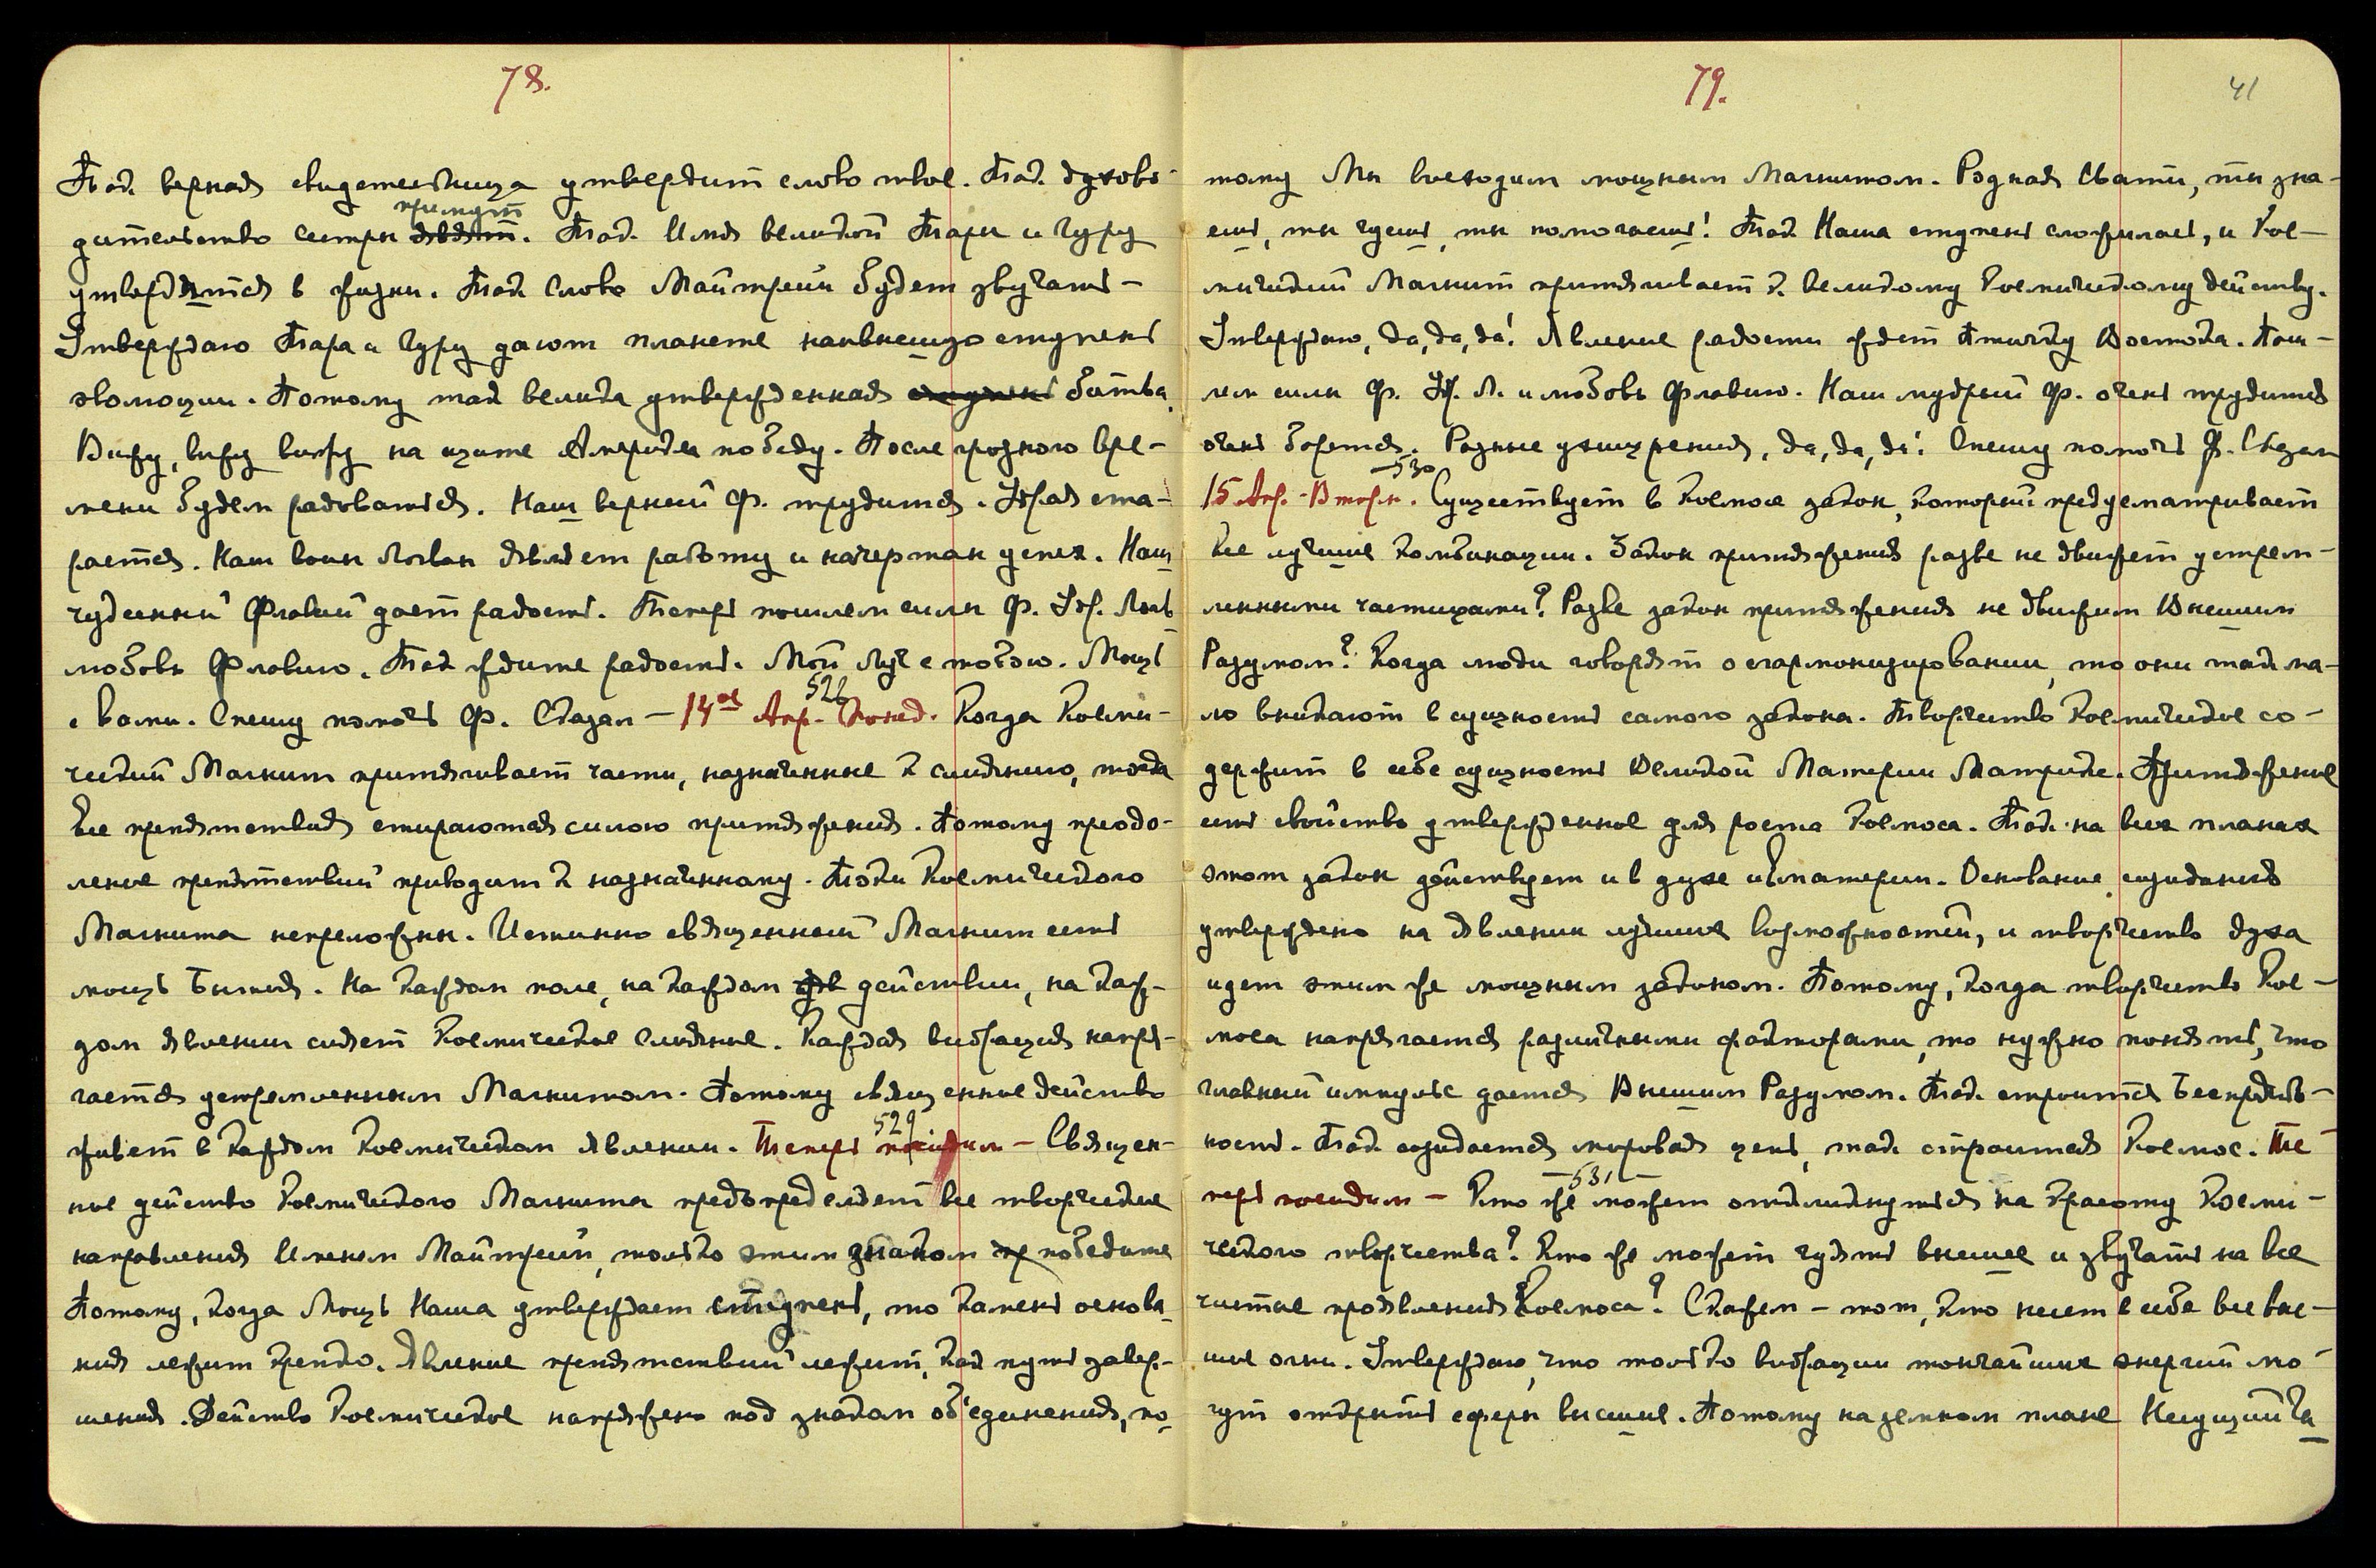 78.
Так верная свидетельница утвердит слово твое. Так духово-
примут
дительство сестры явят. Так Имя великой Тары и Гуру
утвердятся в жизни. Так Слово Майтрейи будет звучать –
Утверждаю Тара и Гуру дают планете наивысшую ступень
эволюции. Потому так велика утвержденная ступень битва.
Вижу, вижу, вижу на щите Америки победу. После грозного вре-
мени будем радоваться. Наш верный Ф. трудится. Удрая ста-
рается. Наш воин Логван являет работу и начертан успех. Наш
чудесный Флавий дает радость. Теперь пошлем силы Ф. Уд. Люб
любовь Флавию. Так ждите радость. Мой Луч с тобою. Мощь
с вами. Спешу помочь Ф. Сказал – 14ое Апр. – Понед. Когда Косми-
528
ческий Магнит притягивает части, назначенные к слиянию, тогда
все препятствия стираются силою притяжения. Потому преодо-
ление препятствий приводит к назначенному. Токи Космического
Магнита непреложны. Истинно священный Магнит есть
мощь Бытия. На каждом поле, на каждом действии, на каж-
дом явлении сияет Космическое Слияние. Каждая вибрация напря-
гается устремленным Магнитом. Потому священное действо
529
живет в каждом Космическом явлении. Теперь посидим – Священ-
ное действо Космического Магнита предопределяет все творческие
направления Именем Майтрейи, только этим знаком победите
Потому, когда Мощь Наша утверждает ступень, то камень основа
ния лежит крепко. Явление препятствий лежит, как путь завер-
шения. Действо Космическое напряжено под знаком объединения, по
79.
41
тому Мы восходим мощным Магнитом. Родная Свати, ты зна-
ешь, ты чуешь, ты помогаешь! Так Наша ступень сложилась, и Кос-
мический Магнит притягивает к великому Космическому действу.
Утверждаю, да, да, да! Явление радости ждет Птичку Востока. Пош-
лем силы Ф. Уд. Л. и любовь Флавию. Наш мудрый Ф. очень трудится
очень борется. Разные ухищрения, да, да, да! Спешу помочь Ф. Сказал
– 530
15 Апр. – Вторн. Существует в Космосе закон, который предусматривает
все лучшие комбинации. Закон притяжения разве не движет устрем-
ленными частицами? Разве закон притяжения не движим Высшим
Разумом? Когда люди говорят о сгармонизировании, то они так ма-
ло вникают в сущность самого закона. Творчество Космическое со-
держит в себе сущность Великой Материи Матрикс. Притяжение
есть свойство утвержденное для роста Космоса. Так на всех планах
этот закон действует и в духе и в материи. Основание созидания
утверждено на явлении лучших возможностей, и творчество духа
идет этим же мощным законом. Потому, когда творчество Кос-
моса напрягается различными факторами, то нужно понять, что
главный импульс дается Высшим Разумом. Так строится Беспредель-
ность. Так созидается мировая цепь, так строится Космос. Те-
– 531 –
перь посидим – Кто же может откликнуться на красоту Косми-
ческого творчества? Кто же может чуять высшее и звучать на все
чистые проявления Космоса? Скажем – тот, кто несет в себе все выс-
шие огни. Утверждаю, что только вибрации тончайших энергий мо-
гут открыть сферы высшие. Потому на земном плане Несущий Ча